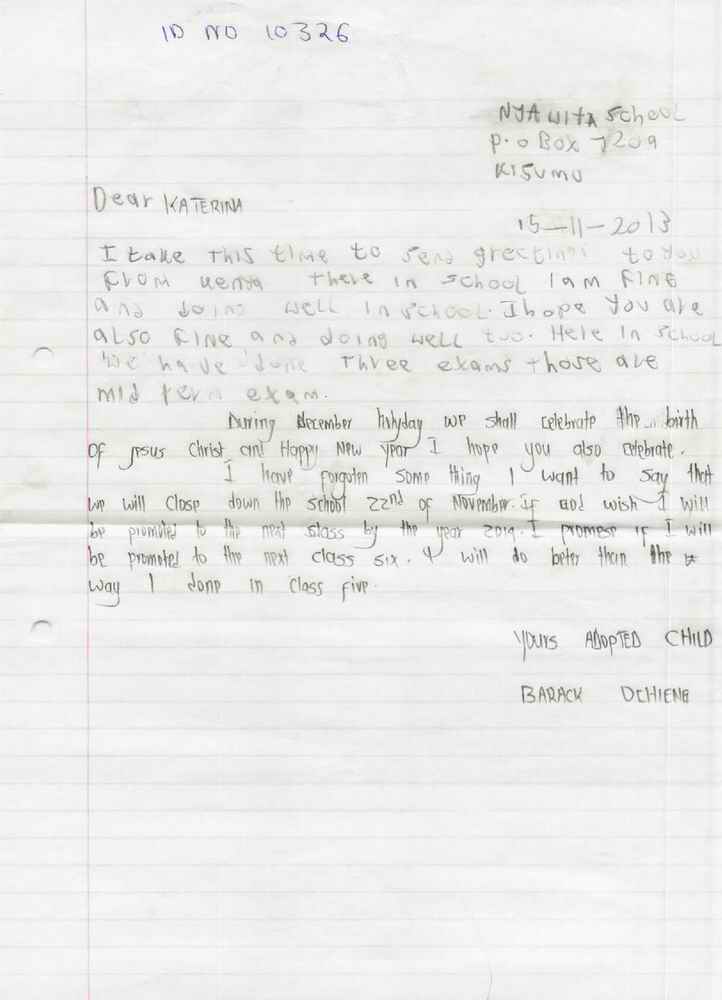 ID NO 10326
NYAWITA School
P.o Box 7209
KISUMU
Dear KATERINA
15-11-2013
I take this time to send greetini to you
From uenya there in school I am FINE
and doing well in school. I hope you are
also Fine and doing well too. Here in school
We have done Three exams those are
mid term exam.
During December holyday we shall celebrate the birth
OF jesus Christ and Happy New year I hope you also celebrate.
I have forgoten some thing I want to say that
we will Close down the school 22nd of November. If God wish I will
be promoted to the next slass by the year 2014. I promese if I will
be promoted to the next class six. I will do beter than the
way I done in class five.
YOURS ADOPTED CHILD
BARACK OCHIENG